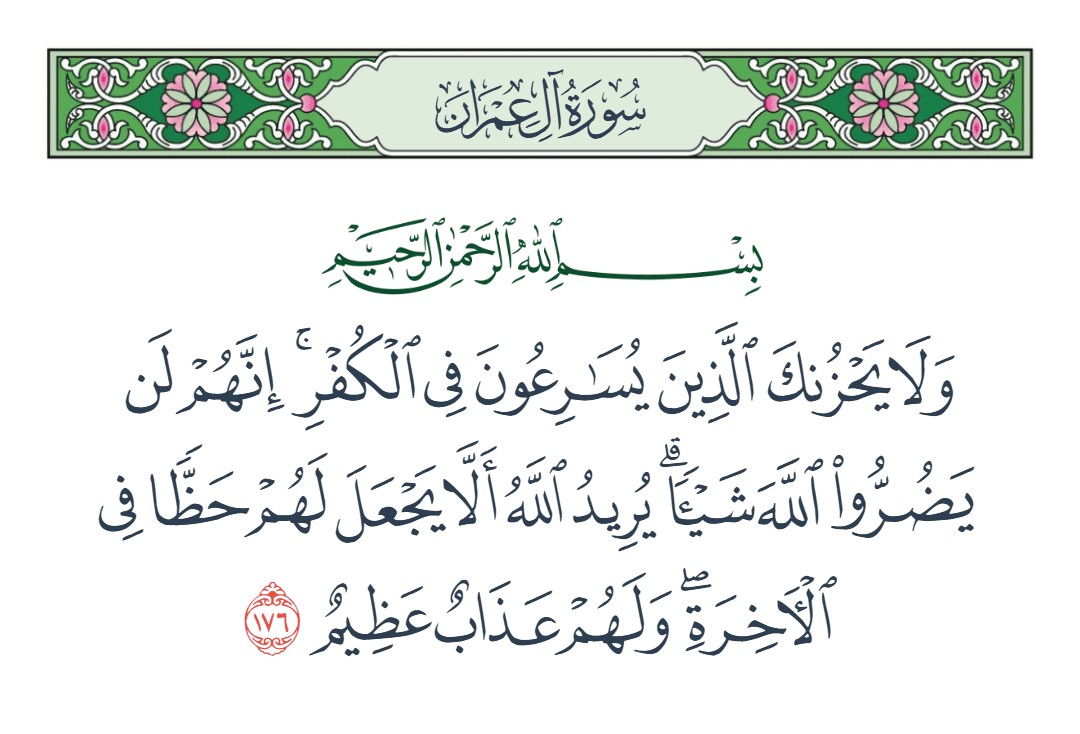 سُورَةُ آلِ عِمْرَانَ
بِسْمِ ٱللَّهِ ٱلرَّحْمَٰنِ ٱلرَّحِيمِ
وَلَا يَحْزُنكَ ٱلَّذِينَ يُسَٰرِعُونَ فِى ٱلْكُفْرِ ۚ إِنَّهُمْ لَن
يَضُرُّوا۟ ٱللَّهَ شَيْـًٔا ۗ يُرِيدُ ٱللَّهُ أَلَّا يَجْعَلَ لَهُمْ حَظًّا فِى
ٱلْـَٔاخِرَةِ ۖ وَلَهُمْ عَذَابٌ عَظِيمٌ ١٧٦